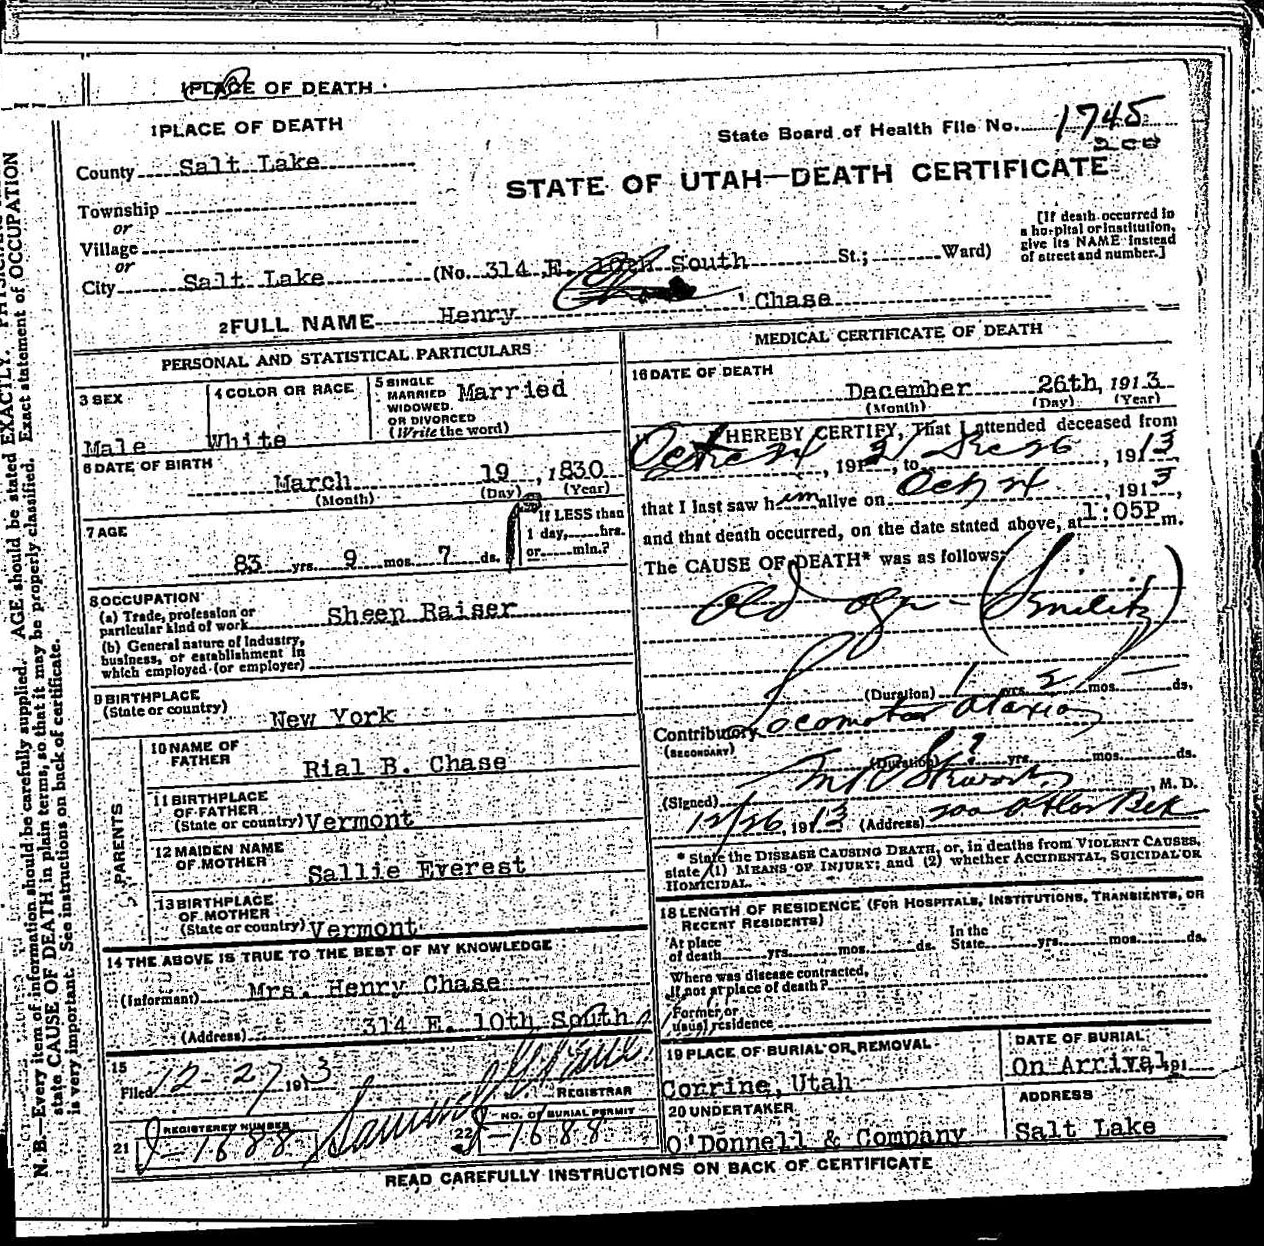 1 PLACE OF DEATH
1 PLACE OF DEATH
State Board of Health File No. 1745
200
County Salt Lake
STATE OF UTAH—DEATH CERTIFICATE
Township
or
Village
or
City Salt Lake (No. 314 E. 10th South St.; Ward)
[If death occurred in
a hospital or institution,
give its NAME instead
of street and number.]
2 FULL NAME Henry Chase
PERSONAL AND STATISTICAL PARTICULARS
3 SEX
Male
4 COLOR OR RACE
White
5 SINGLE
MARRIED
WIDOWED
OR DIVORCED
(Write the word)
Married
6 DATE OF BIRTH
March 19, 1830
(Month) (Day) (Year)
7 AGE
83 yrs. 9 mos. 7 ds.
If LESS than
1 day, hrs.
or min.?
8 OCCUPATION
(a) Trade, profession or
particular kind of work Sheep Raiser
(b) General nature of industry,
business, or establishment in
which employed (or employer)
9 BIRTHPLACE
(State or country)
New York
PARENTS
10 NAME OF
FATHER
Rial B. Chase
11 BIRTHPLACE
OF FATHER
(State or country) Vermont
12 MAIDEN NAME
OF MOTHER
Sallie Everest
13 BIRTHPLACE
OF MOTHER
(State or country) Vermont
14 THE ABOVE IS TRUE TO THE BEST OF MY KNOWLEDGE
(Informant) Mrs. Henry Chase
(Address) 314 E. 10th South
15
Filed 12-27 1913
REGISTRAR
21 REGISTERED NUMBER
J-1688
22 NO. OF BURIAL PERMIT
J-1688
MEDICAL CERTIFICATE OF DEATH
16 DATE OF DEATH
December 26th, 1913
(Month) (Day) (Year)
I HEREBY CERTIFY, That I attended deceased from
, 191 , to Dec 26, 1913,
that I last saw him alive on Oct 24, 1913,
and that death occurred, on the date stated above, at 1:05P m.
The CAUSE OF DEATH* was as follows:
Old age - (Senility)
(Duration) 1 yrs. 2 mos. ds.
Contributory Locomotor Ataxia
(SECONDARY)
(Duration) ? yrs. mos. ds.
(Signed) , M. D.
12/26, 1913 (Address)
* State the DISEASE CAUSING DEATH, or, in deaths from VIOLENT CAUSES,
state (1) MEANS OF INJURY; and (2) whether ACCIDENTAL, SUICIDAL OR
HOMICIDAL.
18 LENGTH OF RESIDENCE (FOR HOSPITALS, INSTITUTIONS, TRANSIENTS, OR
RECENT RESIDENTS)
At place
of death yrs. mos. ds.
In the
State yrs. mos. ds.
Where was disease contracted,
if not at place of death?
Former or
usual residence
19 PLACE OF BURIAL OR REMOVAL
Corrine, Utah
DATE OF BURIAL
On Arrival, 191
20 UNDERTAKER
O'Donnell & Company
ADDRESS
Salt Lake
READ CAREFULLY INSTRUCTIONS ON BACK OF CERTIFICATE
N. B.—Every item of information should be carefully supplied. AGE should be stated EXACTLY.
state CAUSE OF DEATH in plain terms, so that it may be properly classified. Exact statement of OCCUPATION
is very important. See instructions on back of certificate.